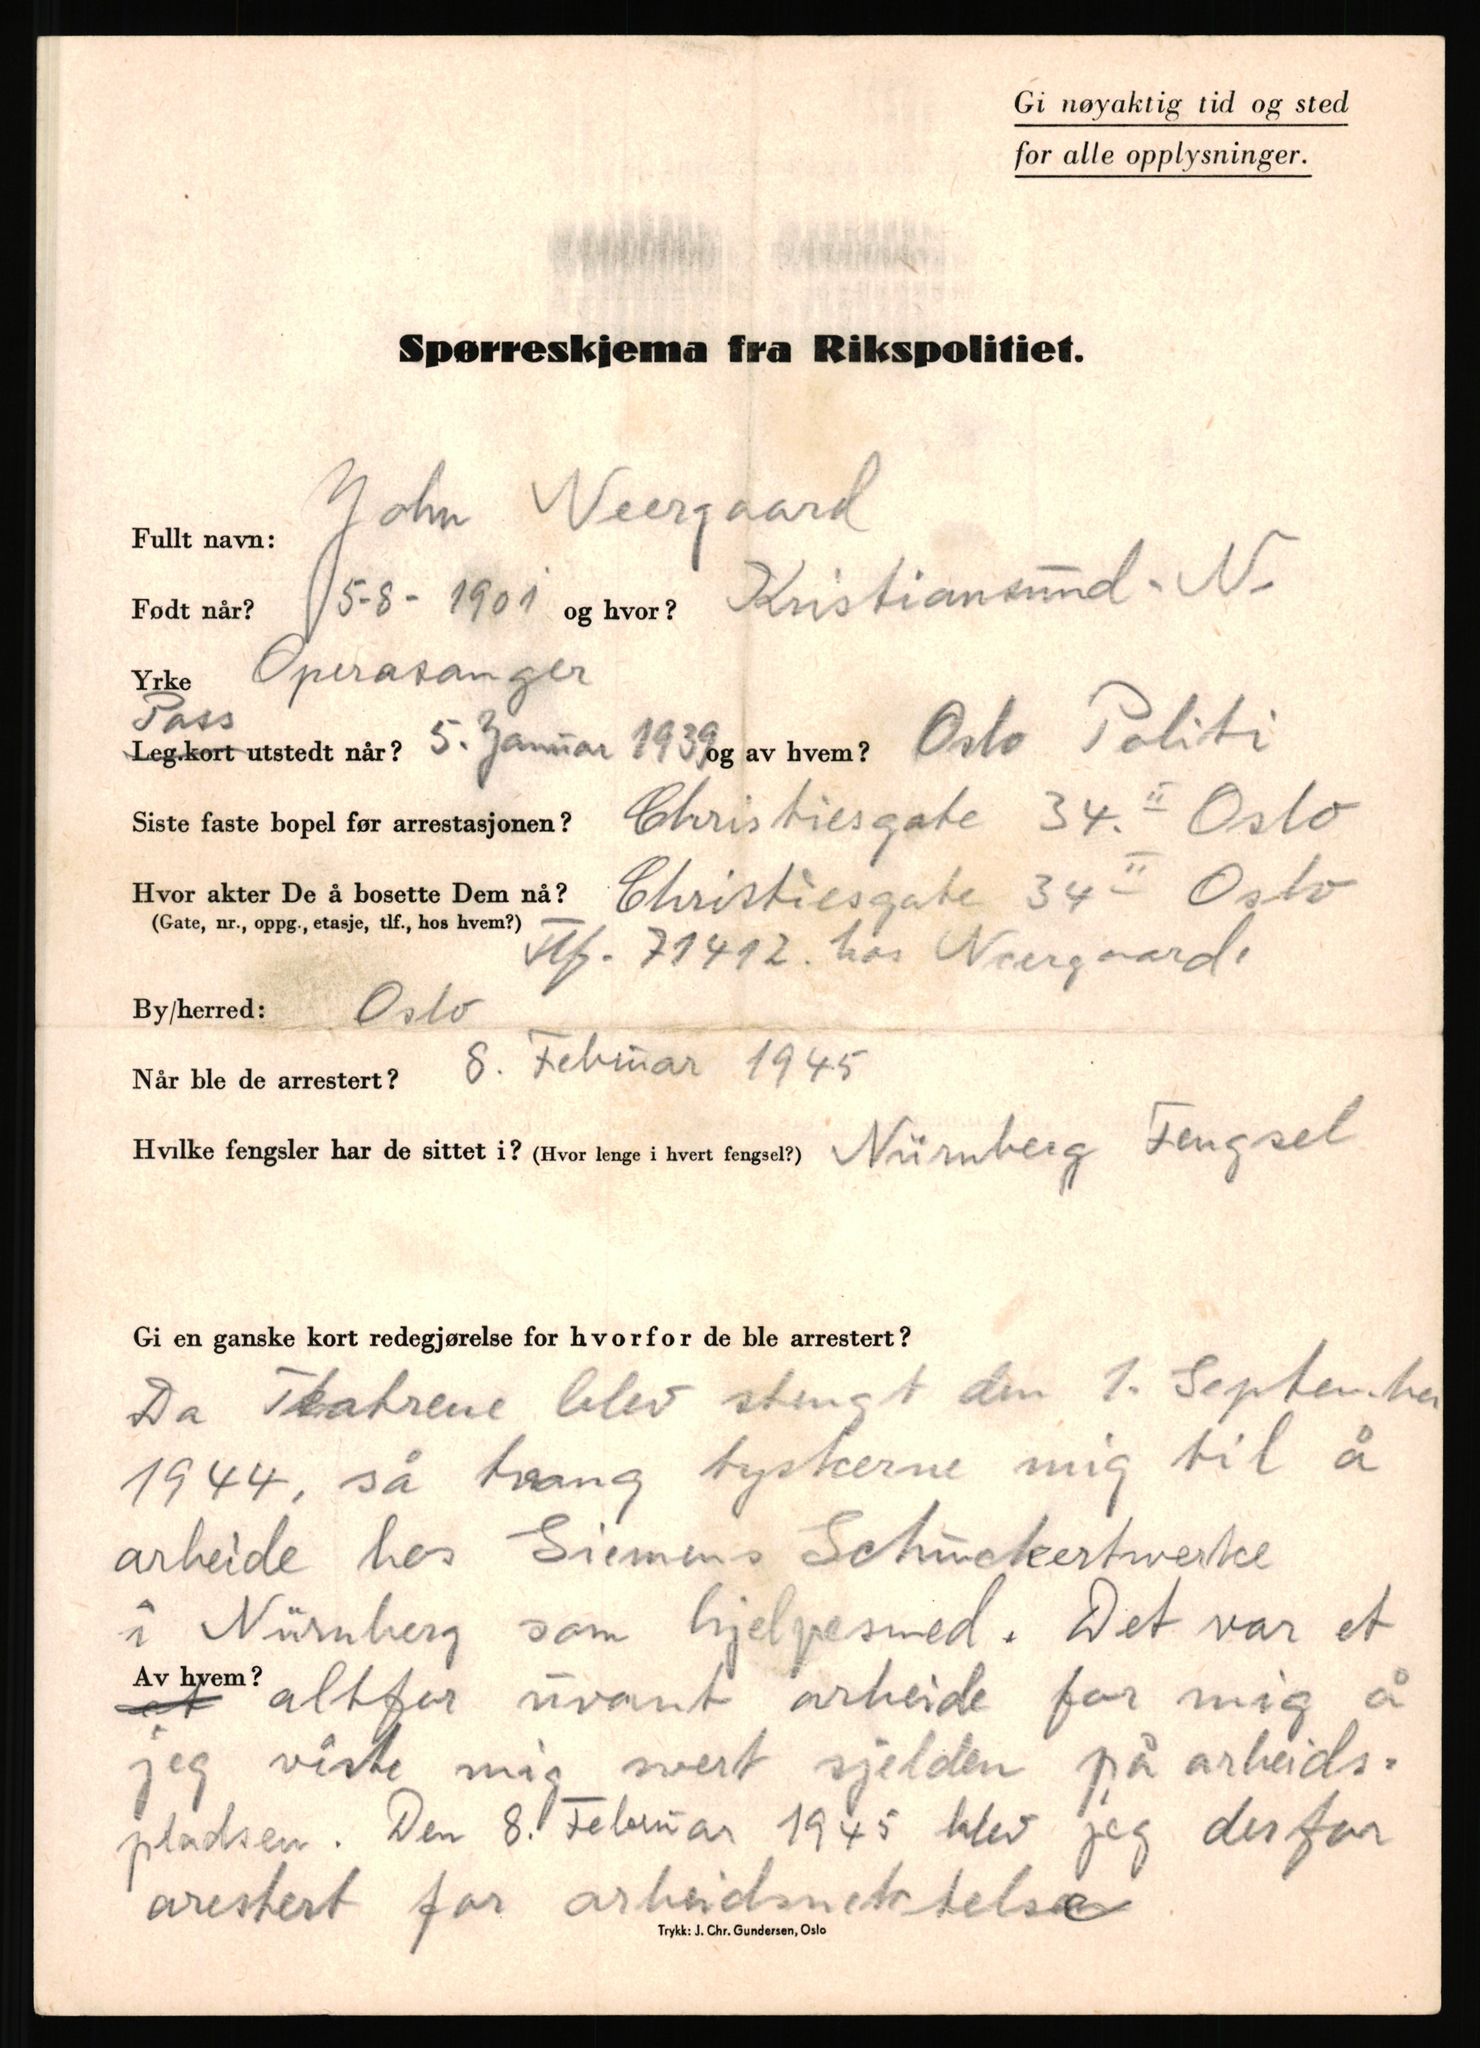 Gi nøyaktig tid og sted
for alle opplysninger.
Spørreskjema fra Rikspolitiet.
Fullt navn: John Neergaard
Født når? 5-8-1901 og hvor? Kristiansund-N.
Yrke Operasanger
Pass
Leg.kort utstedt når? 5. Januar 1939 og av hvem? Oslo Politi
Siste faste bopel før arrestasjonen? Christiesgate 34. II Oslo
Hvor akter De å bosette Dem nå? Christiesgate 34 II Oslo
(Gate, nr., oppg., etasje, tlf., hos hvem?) Tlf. 71412. hos Neergaard.
By/herred: Oslo
Når ble de arrestert? 8. Februar 1945
Hvilke fengsler har de sittet i? (Hvor lenge i hvert fengsel?) Nürnberg Fengsel
Gi en ganske kort redegjørelse for hvorfor de ble arrestert?
Da Teatrene blev stengt den 1. September
1944, så tvang tyskerne mig til å
arbeide hos Siemens Schuckertwerke
i Nürnberg som hjelpesmed. Det var et
Av hvem?
et altfor uvant arbeide for mig å
jeg viste mig svert sjelden på arbeids-
pladsen. Den 8. Februar 1945 blev jeg derfor
arestert for arbeidsnektelse
Trykk: J. Chr. Gundersen, Oslo